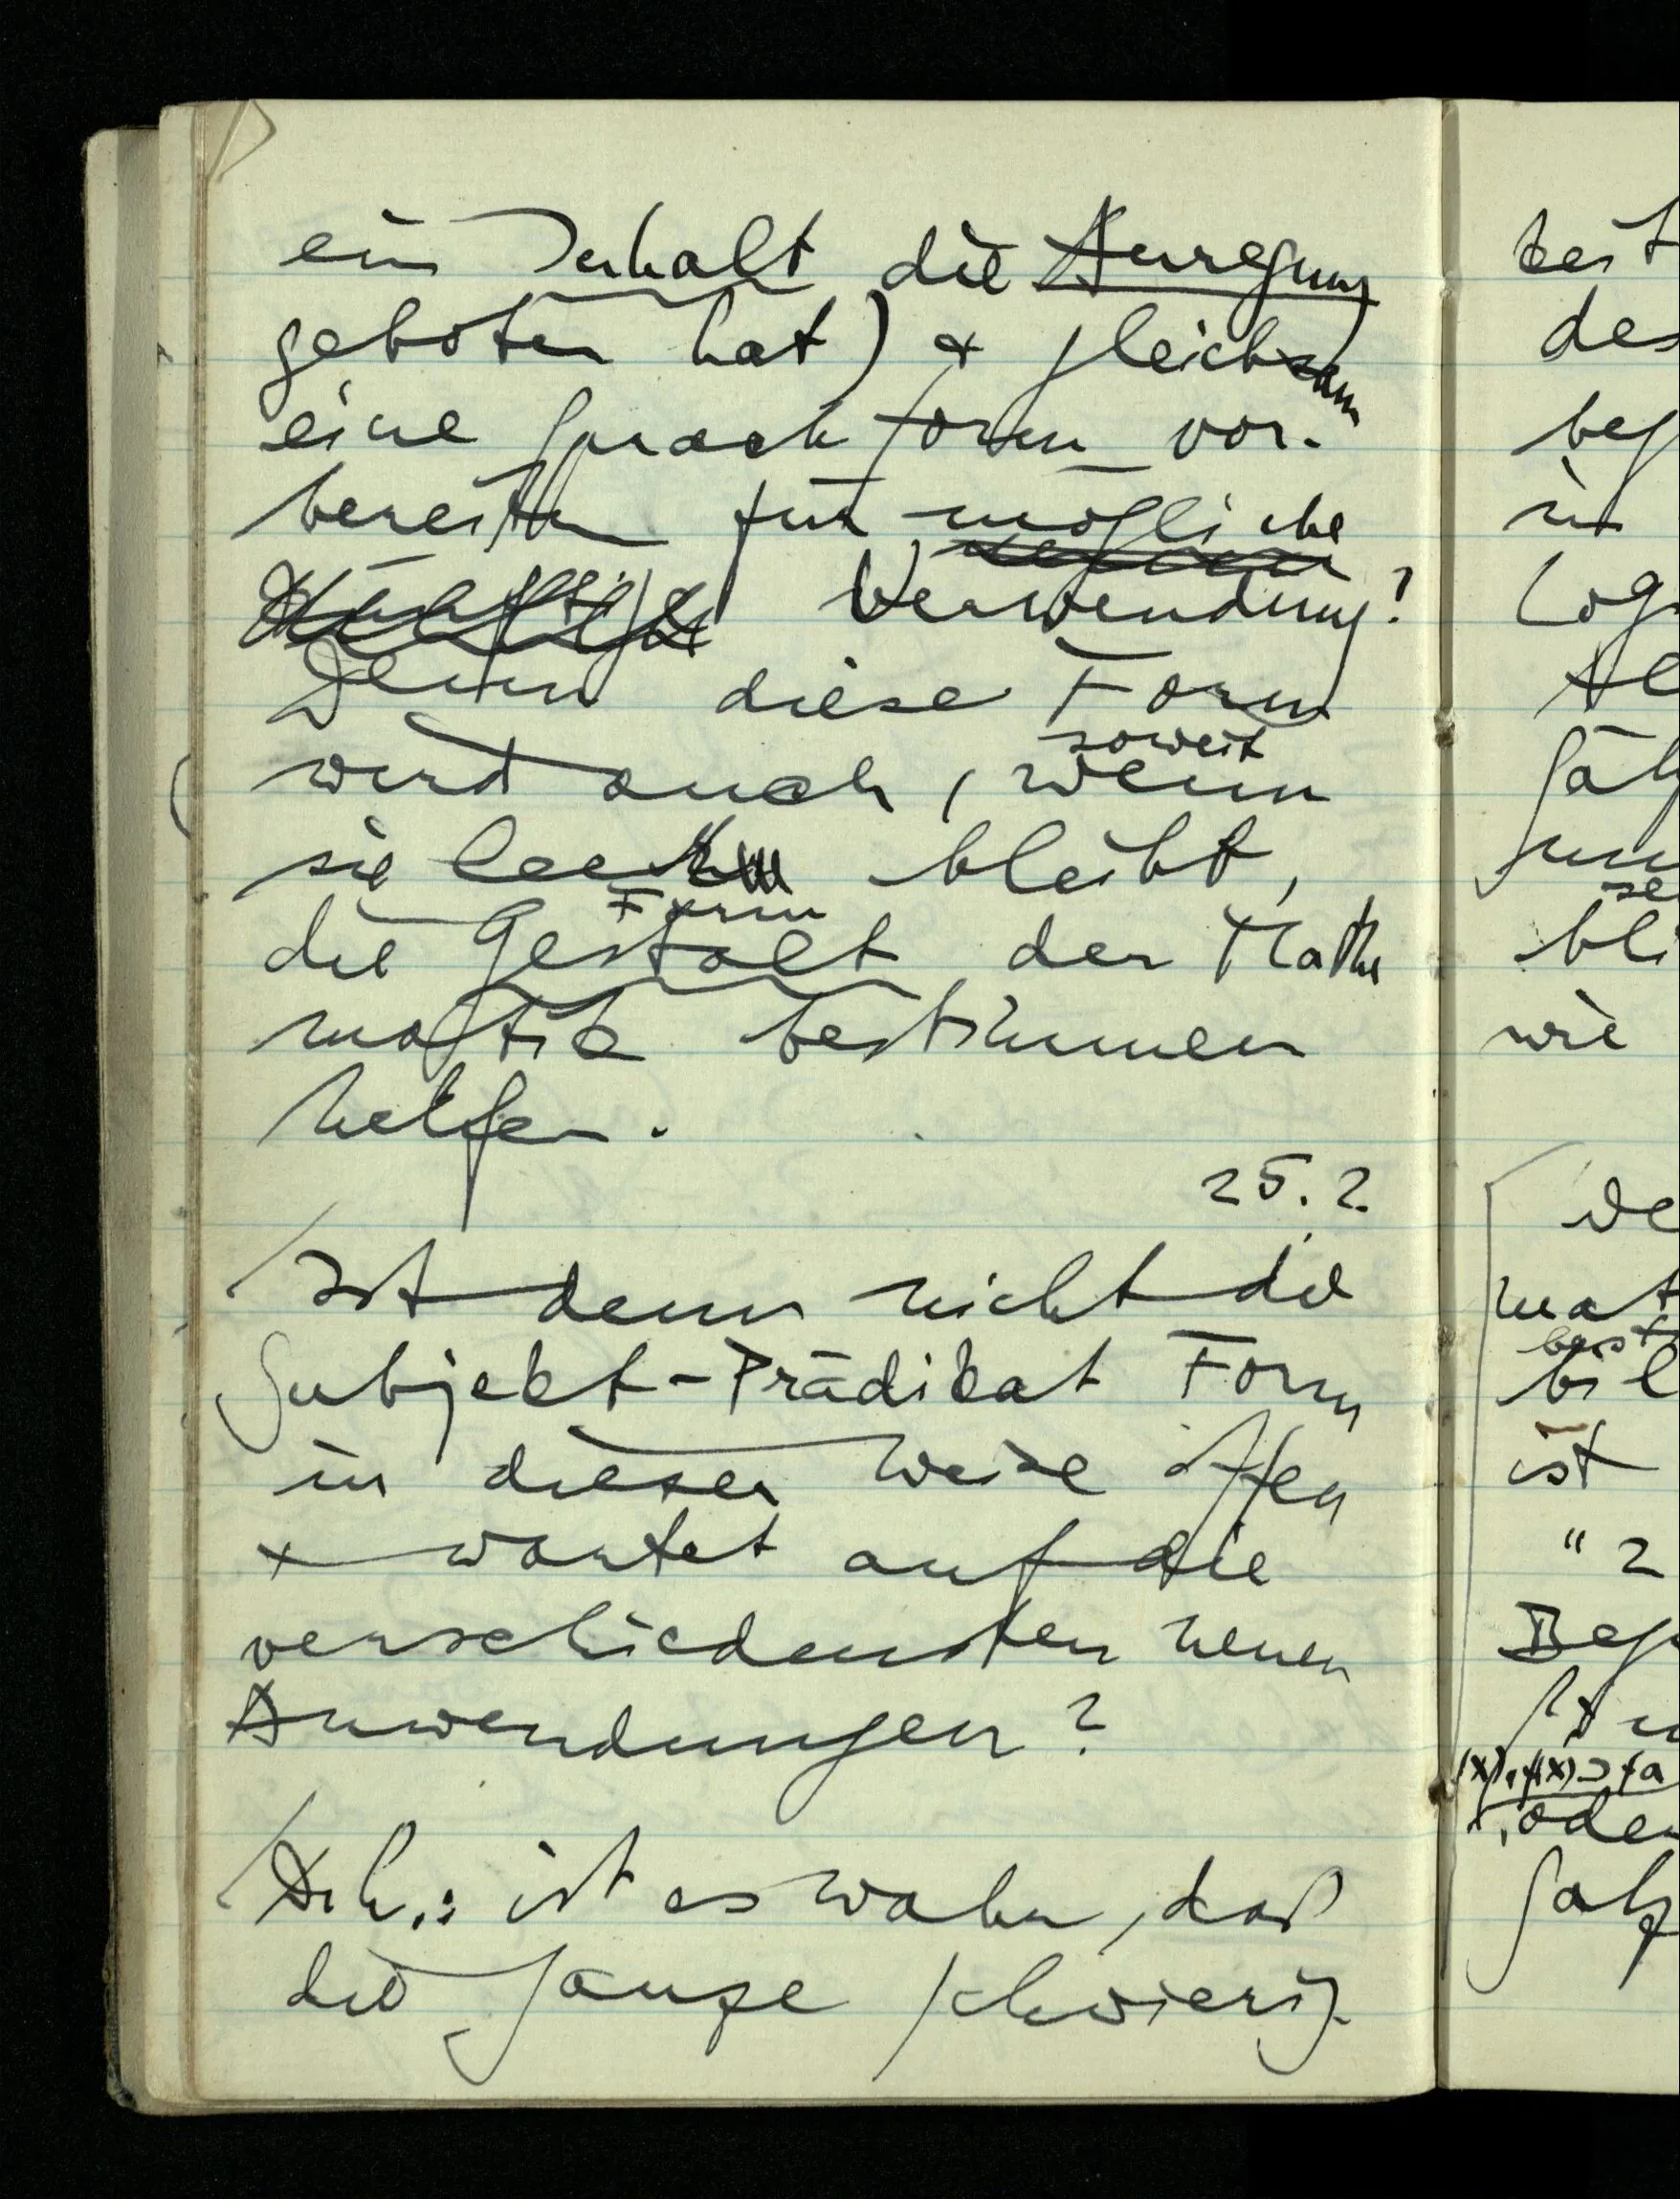 ein Inhalt die Anregung
geboten hat) & gleichsam
eine Sprachform vor-
bereiten für mögliche
Verwendung?
Denn diese Form
soweit
wird auch, wenn
sie leer bleibt,
Form
die Gestalt der Mathe
matik bestimmen
helfen.
25.2.
Ist denn nicht die
Subjekt-Prädikat Form
in dieser Weise offen
& wartet auf die
verschiedensten neuen
Anwendungen?
D.h.: ist es wahr, daß
die ganze Schwierig-
keit
des
beg
in
Log
Sätz
se
bli
wie
De
mat
best
bil
ist
" 2
Beg
oder
Satz